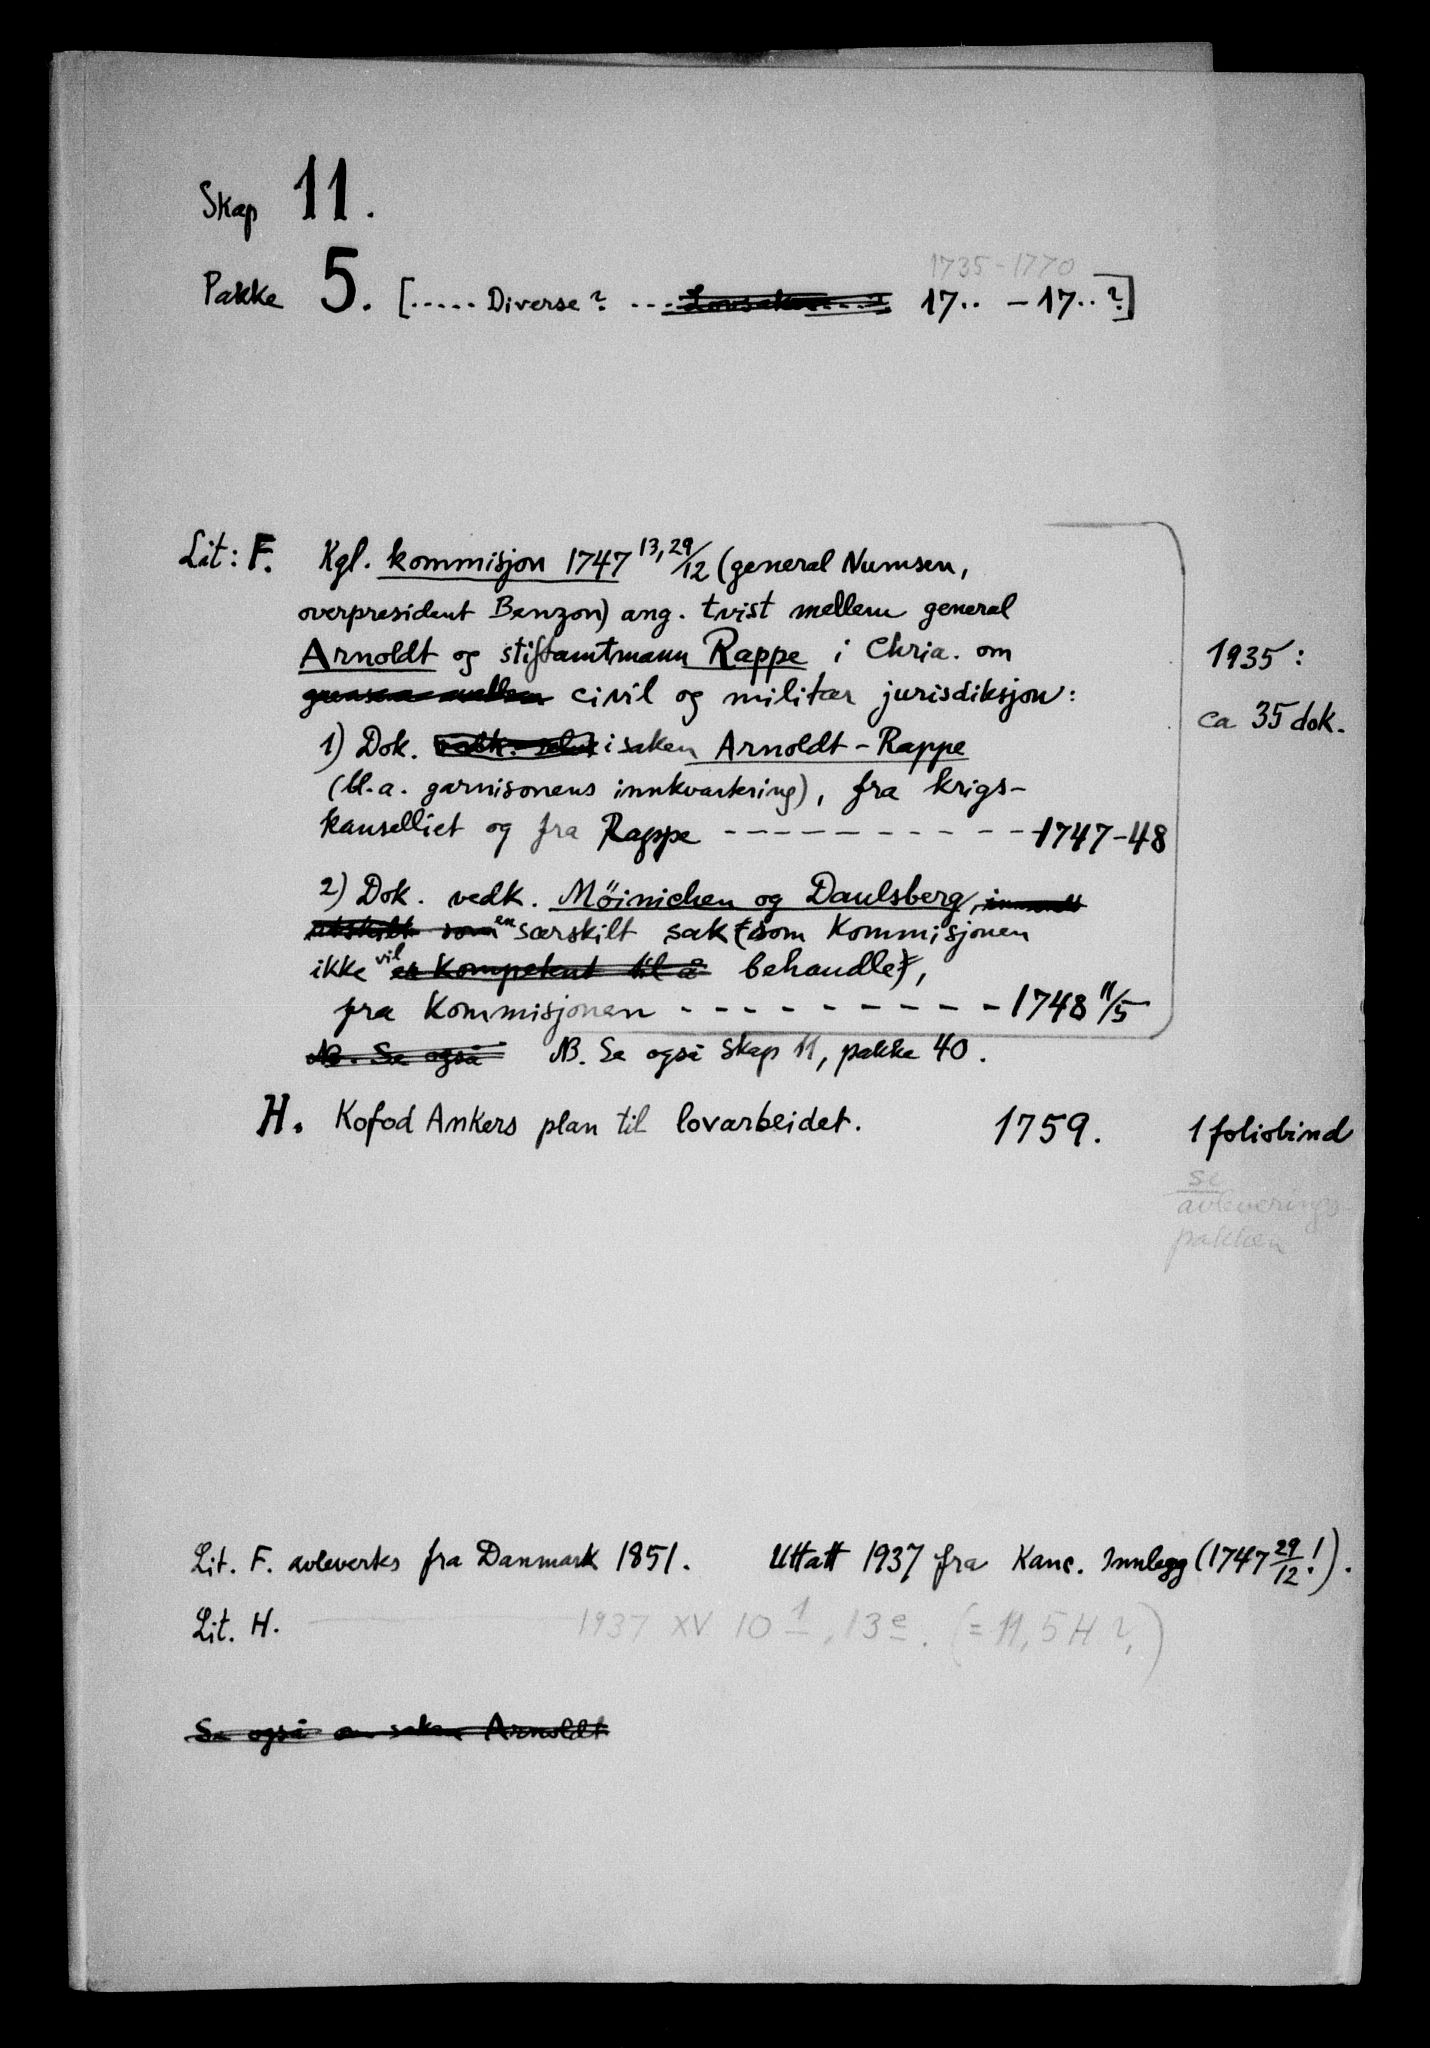 Skap 11.
1735-1770
Pakke 5. [..... Diverse? ... Lovsaker....? 17.. - 17..?]
Lit: F. Kgl. kommisjon 1747 13, 29/12 (general Numsen,
overpresident Benzon) ang. tvist mellem general
Arnoldt og stiftamtmann Rappe i Chria. om
grensene mellem civil og militær jurisdiksjon:
1935:
ca 35 dok.
1) Dok. vedk. selve i saken Arnoldt - Rappe
(bl.a. garnisonens innkvartering), fra krigs-
kanselliet og fra Rappe - - - - - - - - - - 1747-48
2) Dok. vedk. Möinichen og Daulsberg,
utskilt som en særskilt sak (som Kommisjonen
ikke vil er kompetent til å behandle),
fra Kommisjonen - - - - - - - - - 1748 11/5
NB. Se også NB. Se også Skap 11, pakke 40.
H. Kofod Ankers plan til lovarbeidet. 1759. 1 foliobind
se
avleverings-
pakken
Lit. F. avlevertes fra Danmark 1851. Uttatt 1937 fra Kanc. Innlegg (1747 29/12!).
Lit. H. 1937 XV 10 1, 13 e. (= 11, 5 H?)
Se også om saken Arnoldt